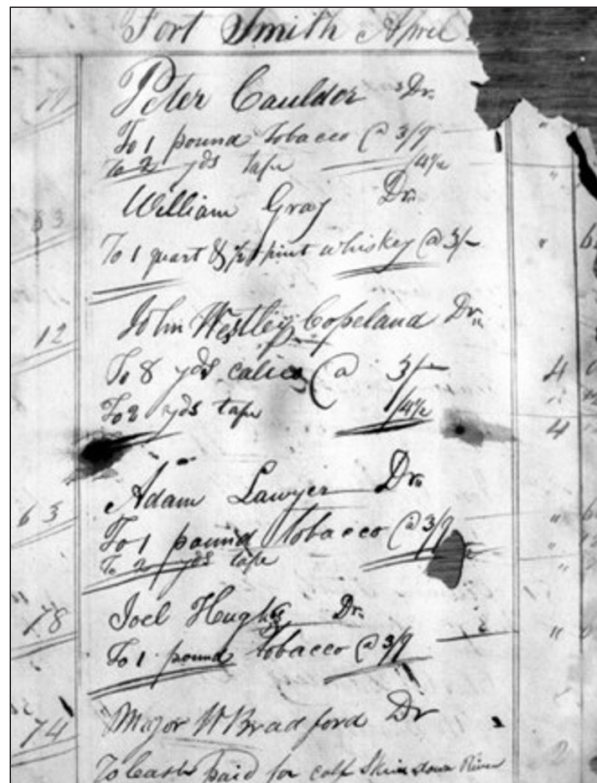 Fort Smith April
70
Peter Caulder Dr.
To 1 pound tobacco @ 3/9
To 2 yds tape /4½
William Gray Dr.
To 1 quart & ½ pint whiskey @ 3/-
12
John Westley Copeland Dr.
To 8 yds calico @ 3/- 4
To 2 yds tape /4½
4
Adam Lawyer Dr.
63
To 1 pound tobacco @ 3/9
To 2 yds tape
78
Joel Hughs Dr.
To 1 pound tobacco @ 3/9
74
Major W Bradford Dr
To Cash paid for calf Skins down River